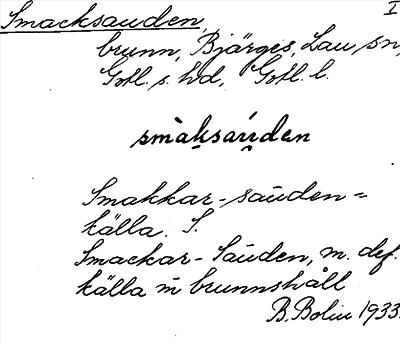 Smacksauden, I
brunn, Bjärges, Lau sn,
Gotl. s. hd, Gotl. l.
smàksaúden
Smakkar-sauden =
källa. S.
Smackar-Sauden, m. def.
källa m brunnshåll
B. Bolin 1933.